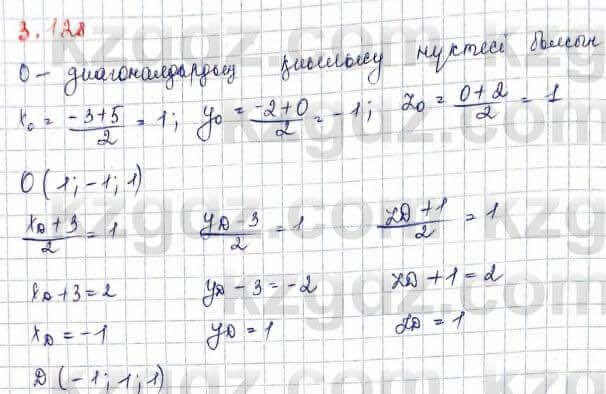 3.128
O - диагоналдардың қиылысу нүктесі болсын
x₀ = (-3+5)/2 = 1; y₀ = (-2+0)/2 = -1; z₀ = (0+2)/2 = 1
O(1;-1;1)
(x_D+3)/2 = 1 (y_D-3)/2 = 1 (z_D+1)/2 = 1
x_D+3=2 y_D-3=-2 z_D+1=2
x_D=-1 y_D=1 z_D=1
D(-1;1;1)
kzgdz.com